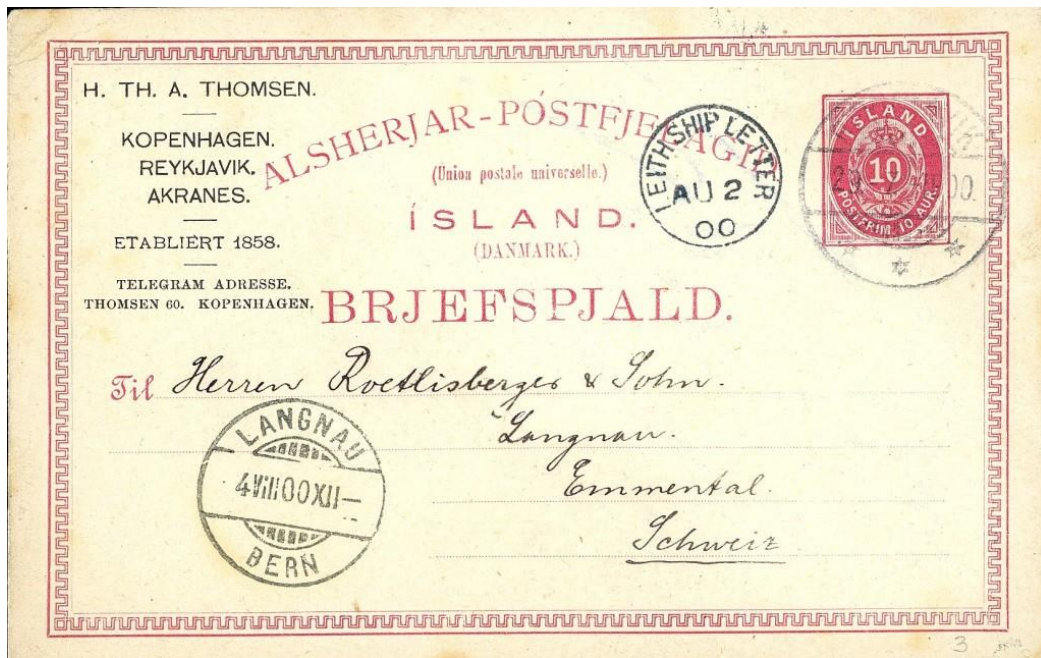 H. TH. A. THOMSEN.
KOPENHAGEN.
REYKJAVIK.
AKRANES.
ETABLIERT 1858.
TELEGRAM ADRESSE.
THOMSEN CO. KOPENHAGEN.
ALSHERJAR-PÓSTFJE
(Union postale universelle.)
ÍSLAND.
(DANMARK.)
BRJEFSPJALD.
LEITH SHIP LETTER
AU 2
00
ISLAND
10
POSTFRIM. 10 AUR.
Til Herren Roethlisberger & Sohn.
Langnau.
Emmental.
Schweiz
LANGNAU
4 VIII 00 XII–
BERN
3